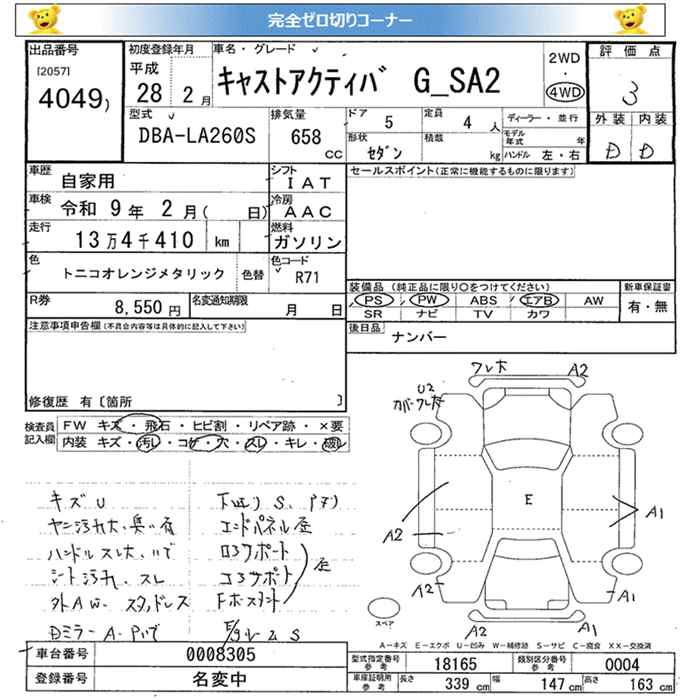 完全ゼロ切りコーナー
出品番号
[2057]
4049)
初度登録年月
平成
28 2月
車名・グレード
キャストアクティバ G_SA2
2WD
・
4WD
評価点
3
外装 内装
D D
型式
DBA-LA260S
排気量
658
cc
ドア
5
定員
4 人
ディーラー・並行
モデル年式 年
形状
セダン
積載
kg
ハンドル 左・右
車歴
自家用
シフト
IAT
セールスポイント(正常に機能するものに限ります)
車検
令和 9年 2月( 日)
冷房
AAC
走行
13万4千410 km
燃料
ガソリン
色
トニコオレンジメタリック
色替
色コード
R71
装備品 (純正品に限り○をつけてください)
新車保証書
PS PW ABS エアB AW
有・無
SR ナビ TV カワ
R券
8,550円
名変通知期限
月 日
後日品
ナンバー
注意事項申告欄(不具合内容等は具体的に記入して下さい)
修復歴 有〔箇所 〕
検査員
記入欄
FW キズ・飛石・ヒビ割・リペア跡・×要
内装 キズ・汚レ・コゲ・穴・スレ・キレ・破レ
キズU
ヤニ汚れ大、臭い有
ハンドルスレ大、
シート汚れ、スレ
外AW、スタッドレス
Dミラー A
S
エンドパネル歪
ロアサポート
コアサポート
歪
S
A2
U2
A2
A2
A2
A1
A1
E
スペア
A=キズ E=エクボ U=凹み W=補修跡 S=サビ C=腐食 XX=交換済
車台番号
0008305
登録番号
名変中
型式指定番号
参考
18165
類別区分番号
参考
0004
車庫証明用
参考
長さ
339 cm
幅
147 cm
高さ
163 cm